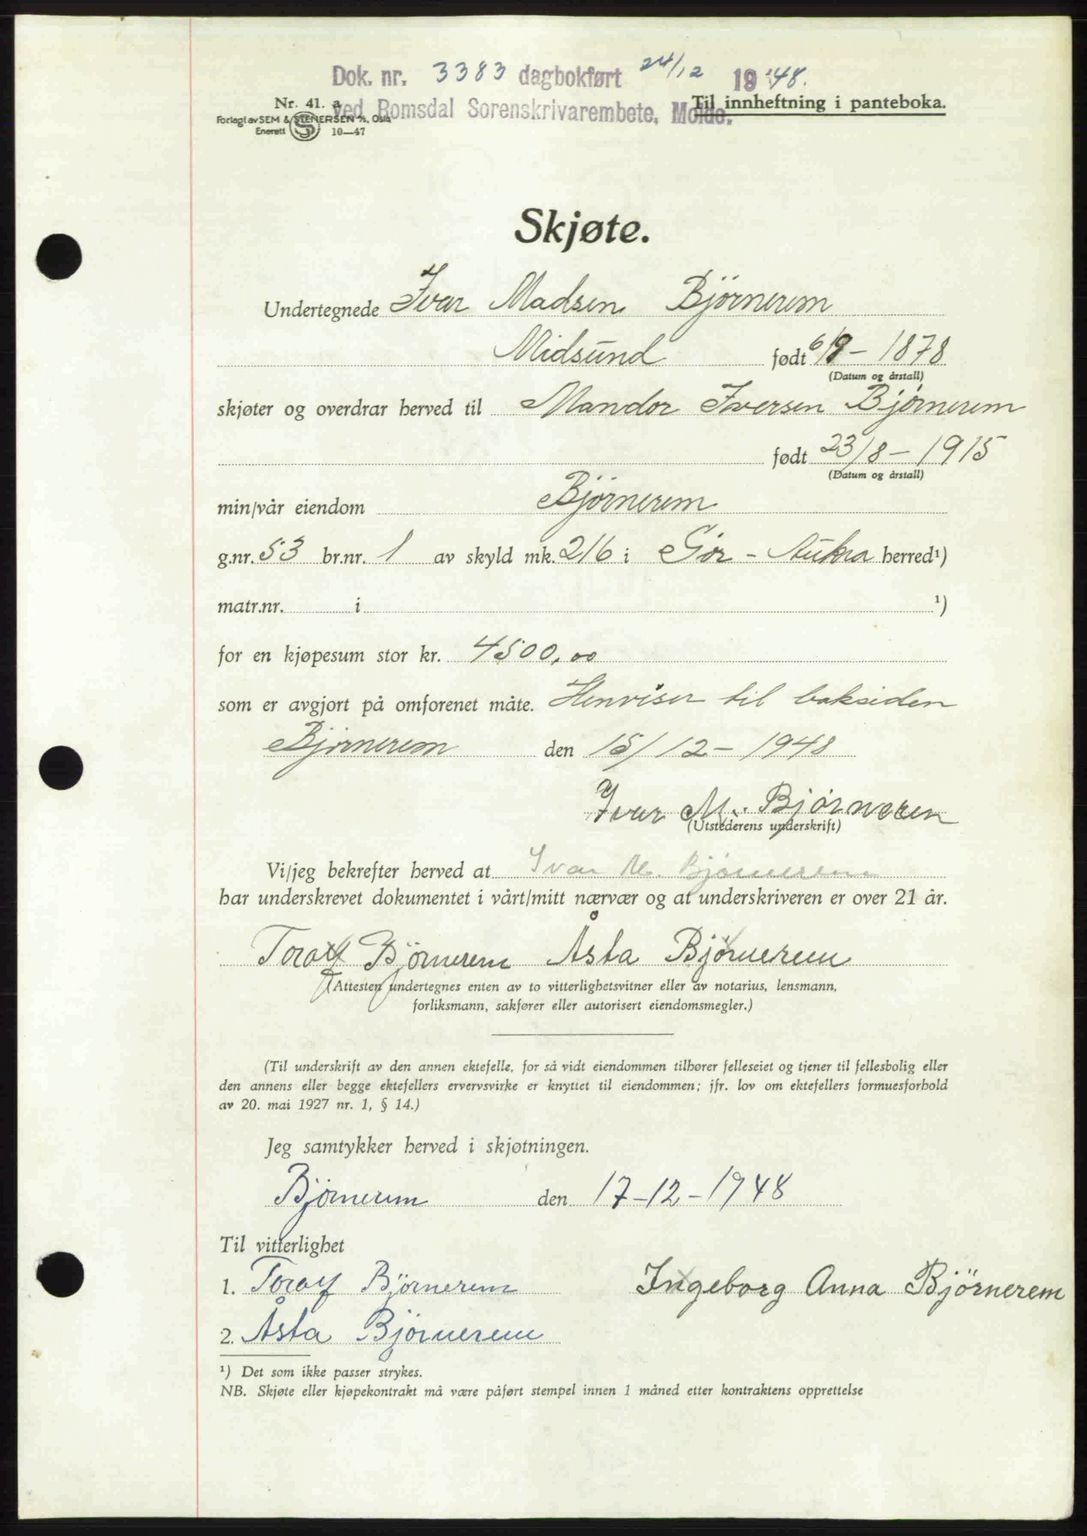 Dok. nr. 3383 dagbokført 24/12 1948.
ved Romsdal Sorenskrivarembete, Molde.
Nr. 41. a
Til innheftning i panteboka.
Forlagt av SEM & STENERSEN A/S, Oslo
Enerett S 10—47
Skjøte.
Undertegnede Ivar Madsen Bjørnerem
Midsund født 6/9 – 1878
(Datum og årstall)
skjøter og overdrar herved til Mandor Iversen Bjørnerem
født 23/8 – 1915
(Datum og årstall)
min/vår eiendom Bjørnerem
g.nr. 53 br.nr. 1 av skyld mk. 216 i Sør - Aukra herred¹)
matr.nr. i ¹)
for en kjøpesum stor kr. 4500,00
som er avgjort på omforenet måte. Henviser til baksiden
Bjørnerem den 15/12 – 1948
Ivar M. Bjørneren
(Utstederens underskrift)
Vi/jeg bekrefter herved at Ivar M. Bjørnerem
har underskrevet dokumentet i vårt/mitt nærvær og at underskriveren er over 21 år.
Bjørnerem Åsta Bjørnerem
(Attesten undertegnes enten av to vitterlighetsvitner eller av notarius, lensmann,
forliksmann, sakfører eller autorisert eiendomsmegler.)
(Til underskrift av den annen ektefelle, for så vidt eiendommen tilhører felleseiet og tjener til fellesbolig eller
den annens eller begge ektefellers ervervsvirke er knyttet til eiendommen; jfr. lov om ektefellers formuesforhold
av 20. mai 1927 nr. 1, § 14.)
Jeg samtykker herved i skjøtningen.
Bjørnerem den 17-12-1948
Til vitterlighet
1. Bjørnerem Ingeborg Anna Bjørnerem
2. Åsta Bjørnerem
¹) Det som ikke passer strykes.
NB. Skjøte eller kjøpekontrakt må være påført stempel innen 1 måned etter kontraktens opprettelse